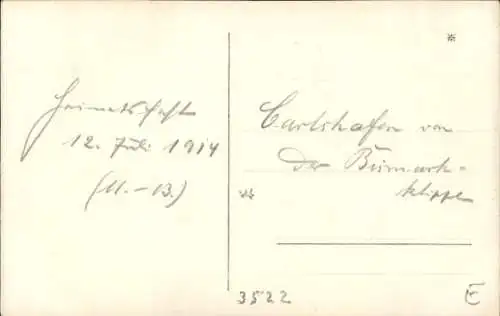 Heimatfest
12. Juli 1914
(11.-13.)
Carlshafen von
der Bismark-
klippe
3522
E